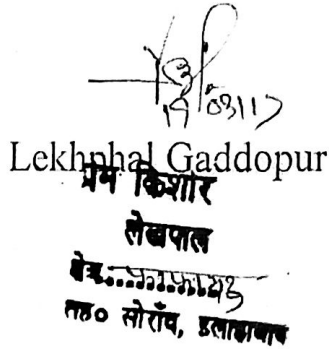 Lekhphal Gaddopur
प्रेम किशोर
लेखपाल
क्षेत्र
तह० सोराँव, इलाहाबाद